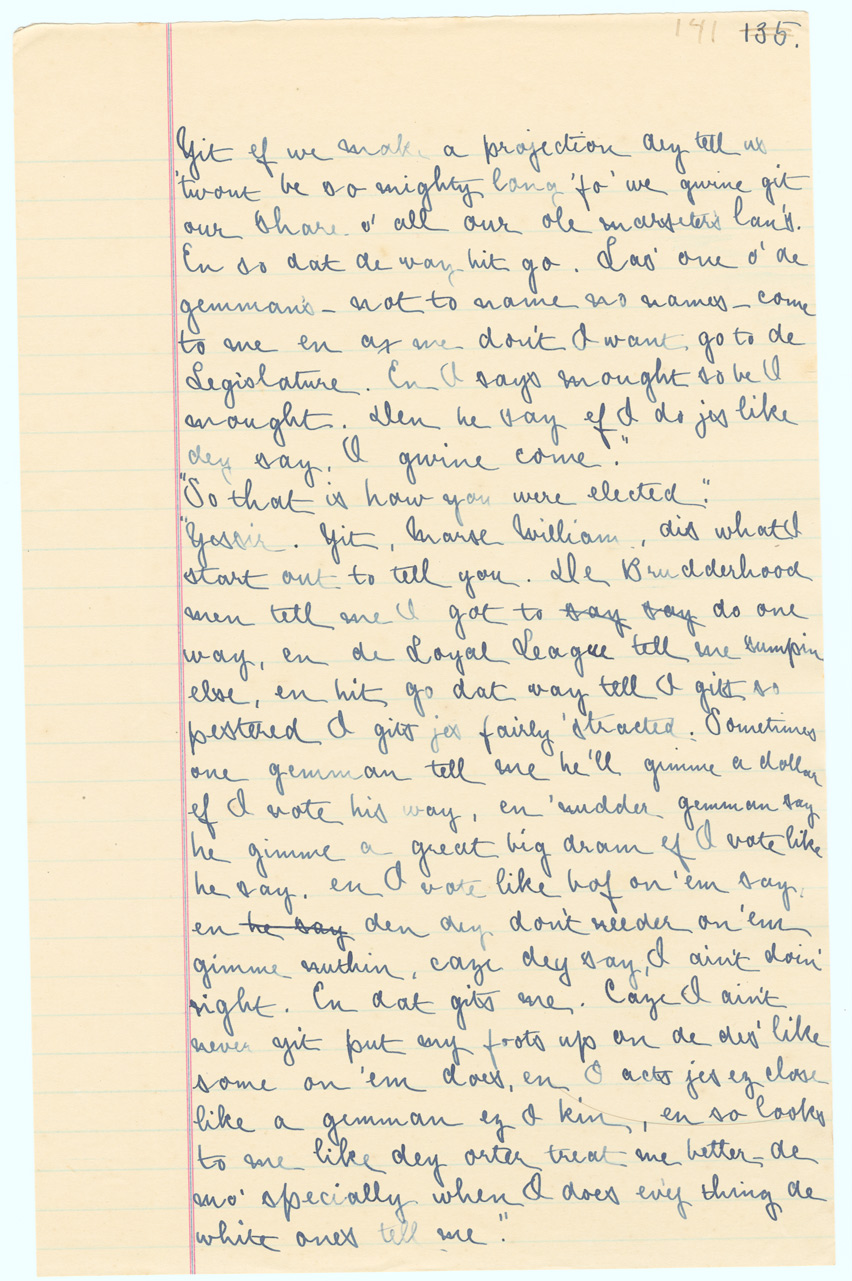 141 135.
Yit ef we make a projection dey tell us
'twont be so mighty long 'fo' we gwine git
our share o' all our ole marseters lan's.
En so dat de way hit go. Las' one o' de
gemmans – not to name no names – come
to me en ax me don't I want go to de
Legislature. En I says mought so be I
mought. Den he say ef I do jes like
dey say, I gwine come."
"So that is how you were elected."
"Yessir. Yit, Marse William, dis what I
start out to tell you. De Brudderhood
men tell me I got to say say do one
way, en de Loyal League tell me sumpin
else, en hit go dat way tell I gits so
pestered I gits jes fairly 'stracted. Sometimes
one gemman tell me he'll gimme a dollar
ef I vote his way, en 'nudder gemman say
he gimme a great big dram ef I vote like
he say. en I vote like bof on 'em say,
en he say den dey don't needer on 'em
gimme nuthin, caze dey say, I ain't doin'
right. En dat gits me. Caze I ain't
never yit put my foots up on de des' like
some on 'em does, en I acts jes ez close
like a gemman ez I kin, en so looks
to me like dey orter treat me better – de
mo' specially when I does ev'y thing de
white ones tell me."